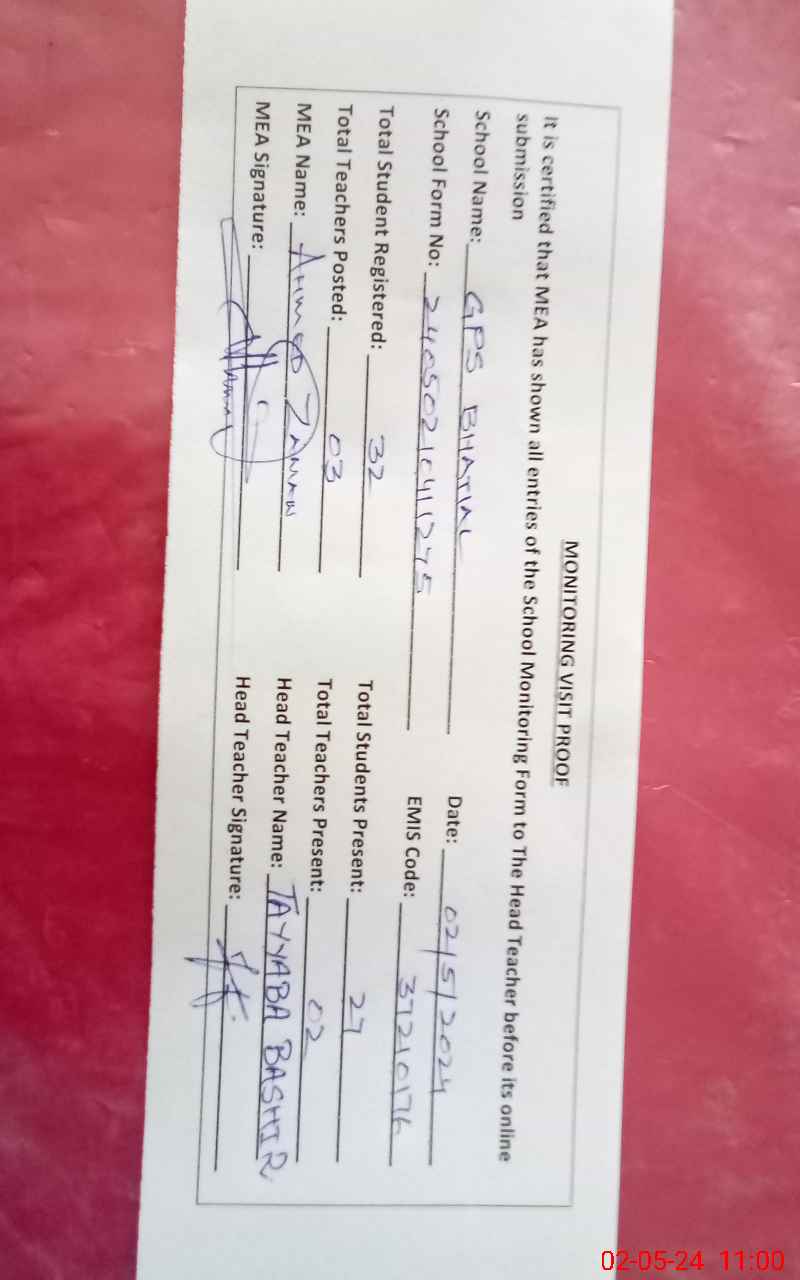 MONITORING VISIT PROOF
It is certified that MEA has shown all entries of the School Monitoring Form to The Head Teacher before its online
submission
School Name: GPS BHATIAL Date: 02/5/2024
School Form No: 2405021041275 EMIS Code: 37210176
Total Student Registered: 32 Total Students Present: 27
Total Teachers Posted: 03 Total Teachers Present: 02
MEA Name: AHMED ZAMAN Head Teacher Name: TAYYABA BASHIR
MEA Signature: Head Teacher Signature:
02-05-24 11:00